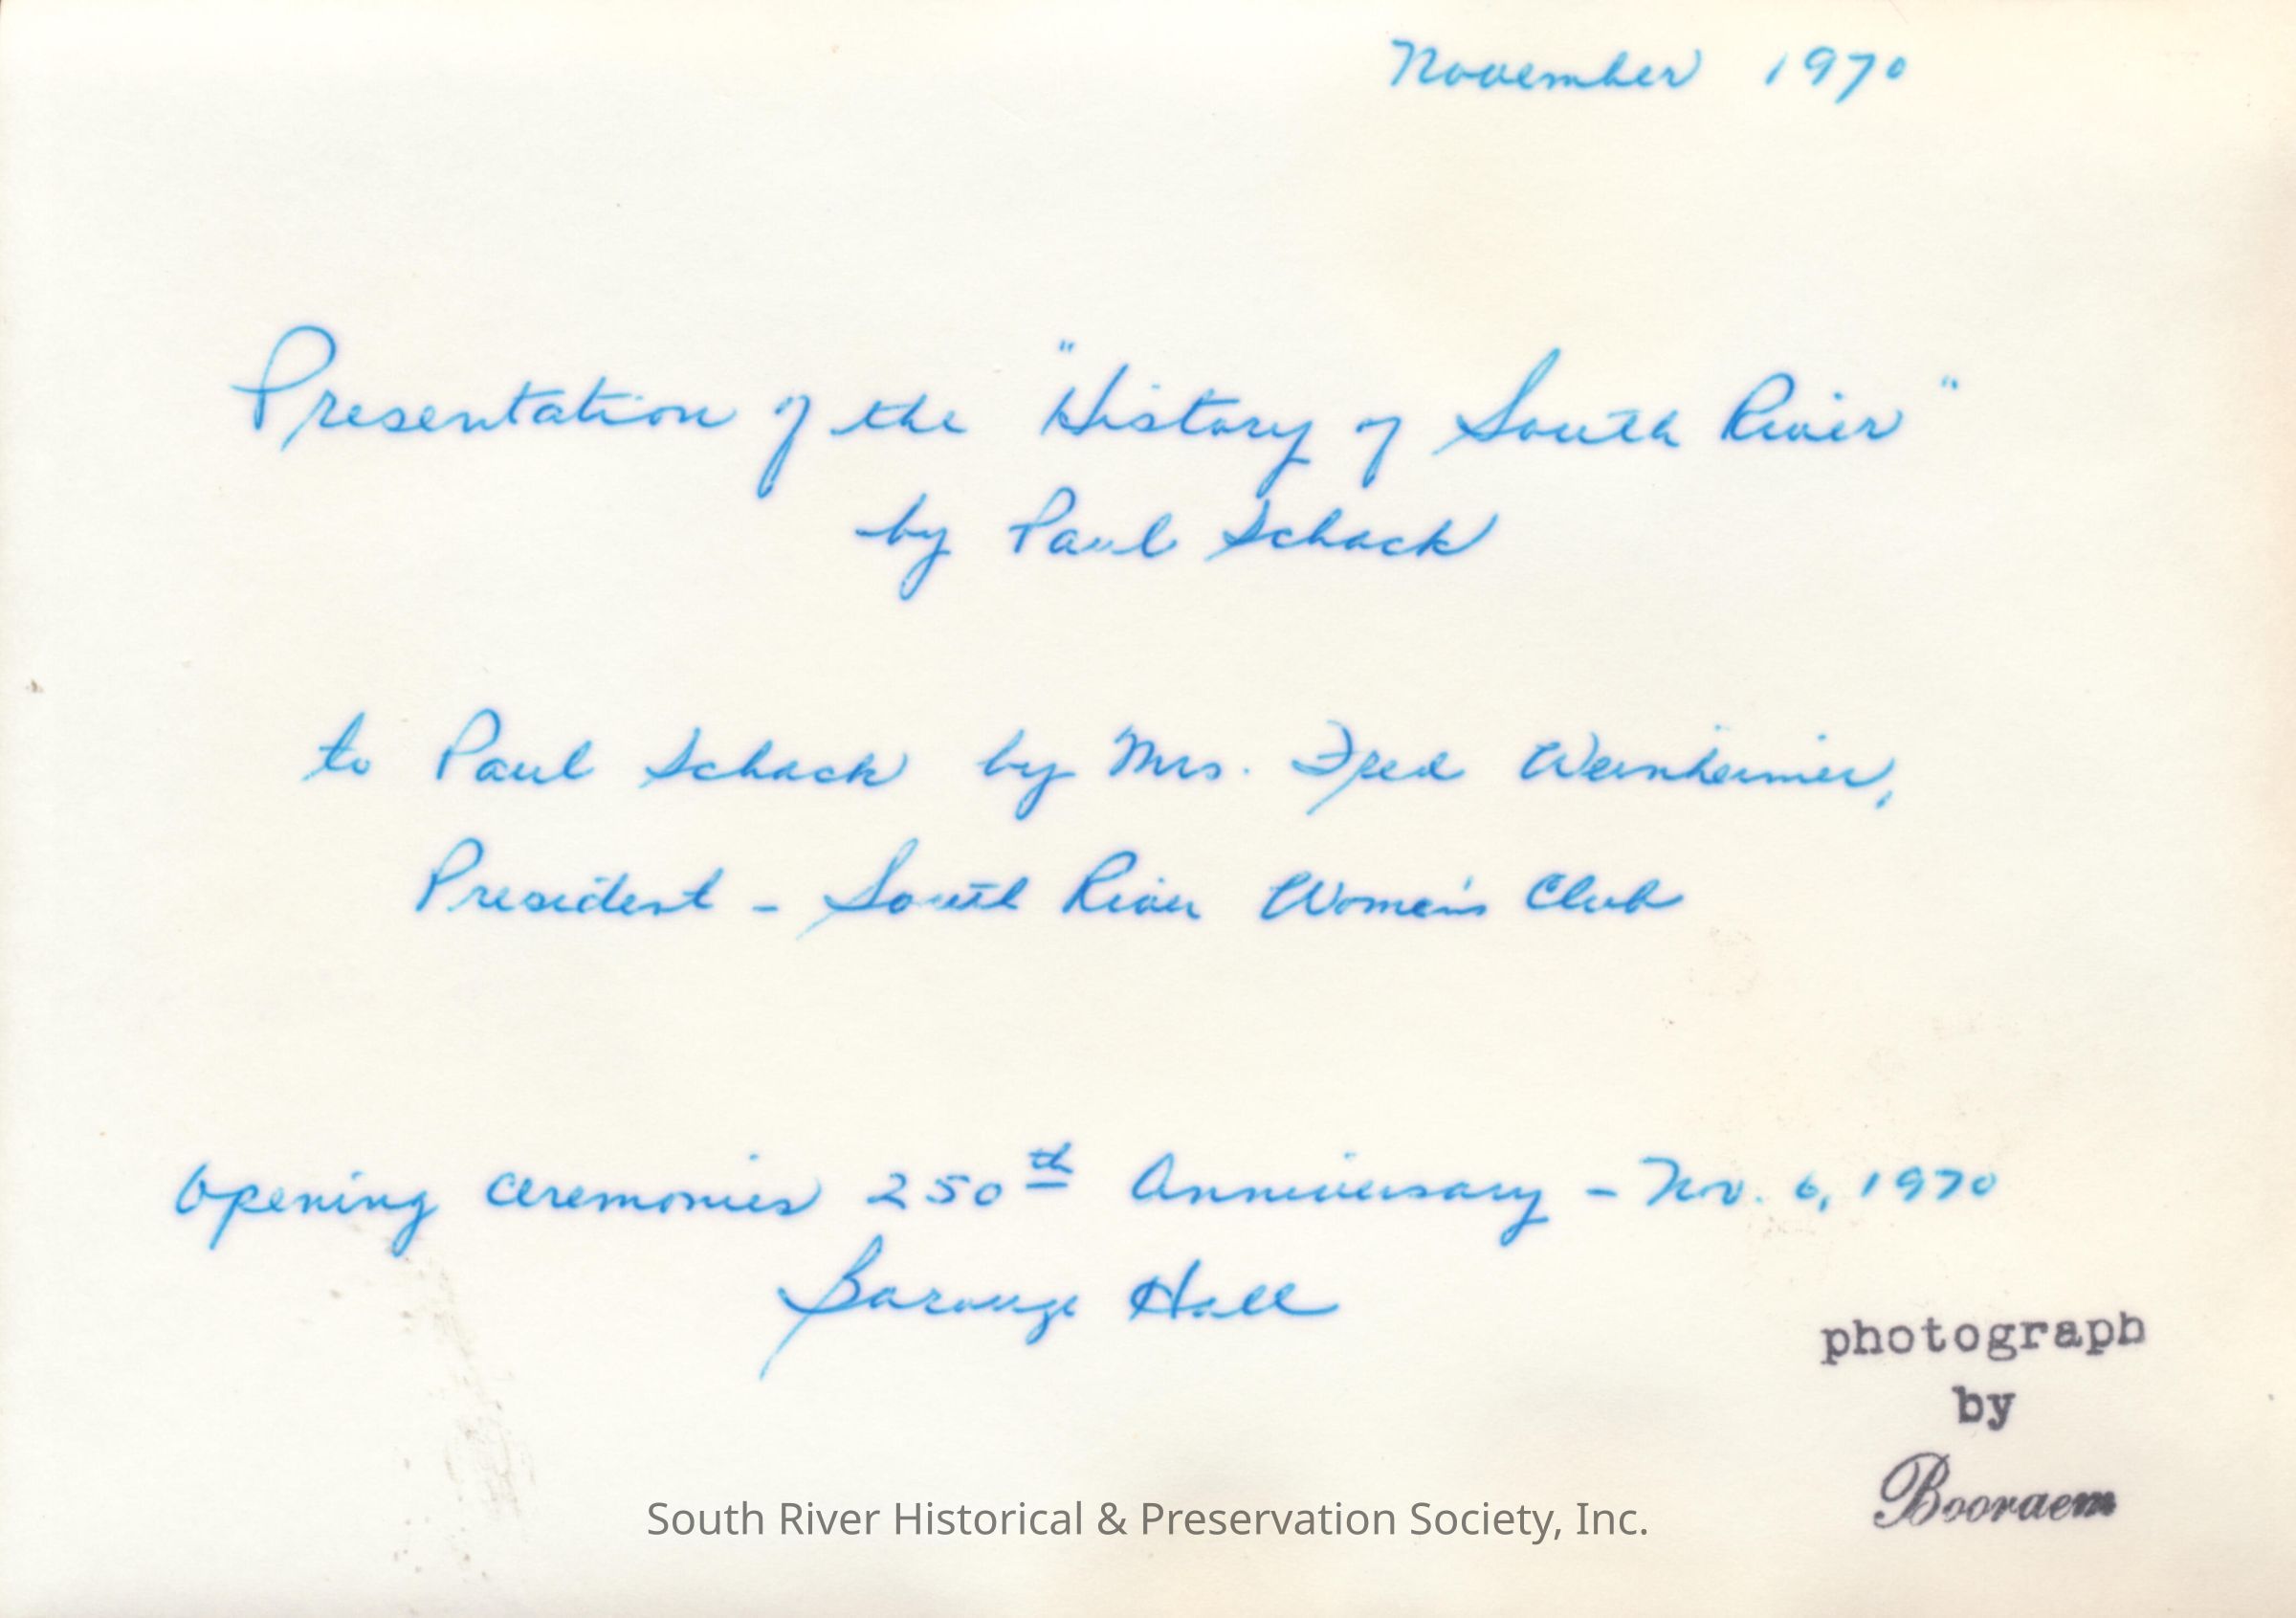 November 1970
Presentation of the "History of South River"
by Paul Schack
to Paul Schack by Mrs. Fred Weinheimer,
President - South River Women's Club
Opening Ceremonies 250th Anniversary - Nov. 6, 1970
Hall
photograph
by
Booraem
South River Historical & Preservation Society, Inc.